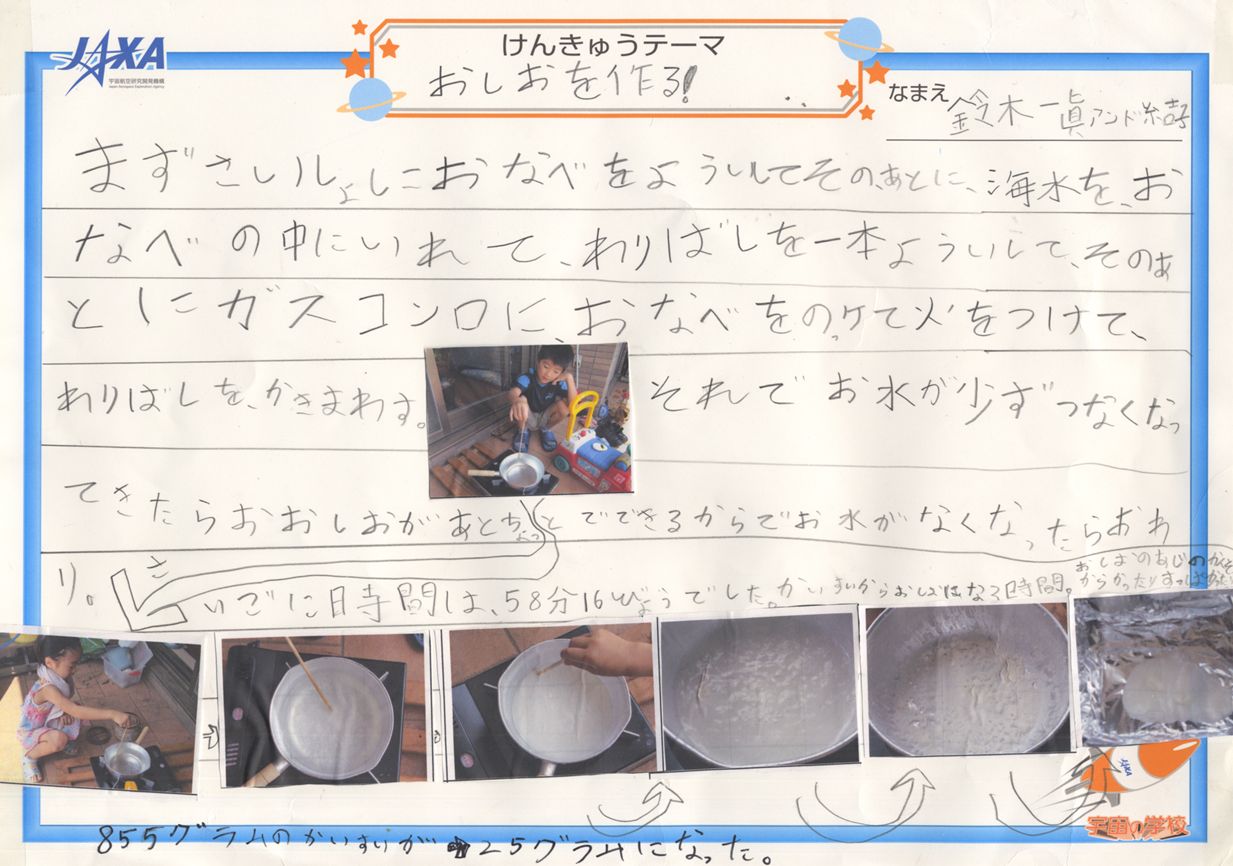 JAXA
宇宙航空研究開発機構
Japan Aerospace Exploration Agency
けんきゅうテーマ
おしおを作る!
なまえ 鈴木一眞アンド結子
まずさいしょにおなべをよういしてそのあとに、海水を、お
なべの中にいれて、わりばしを一本よういして、そのあ
とにガスコンロに、おなべをのっけて火をつけて、
わりばしを、かきまわす。 それでお水が少ずつなくなっ
てきたらおおしおがあとちょっとでできるからでお水がなくなったらおわ
り。
さいごに時間は、58分16びょうでした。かいすいからおしおになる時間。
おしおのあじの
からかったりすっぱかった
855グラムのかいすいが25グラムになった。
JAXA
宇宙の学校